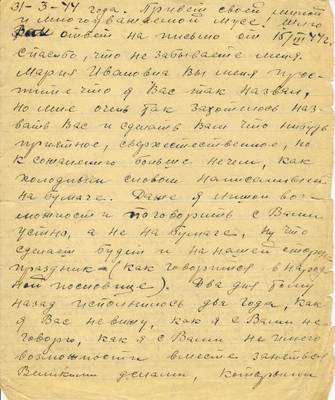 31-3-44 года. Привет своей милой
и многоуважаемой Мусе! Шлю
Вам ответ на письмо от 15/III 44 г.
Спасибо, что не забываете меня.
Мария Ивановна Вы меня прос-
тите что я Вас так назвал,
но мне очень так захотелось наз-
вать Вас и сделать Вам что нибудь
приятное, сверхестественное, но
к сожалению больше нечем, как
холодным словом написанным
на бумаге. Даже я лишон воз-
можности поговорить с Вами
устно, а не на бумаге, ну что
сделаеш будет и на нашей
праздник (как говорится в народ-
ной пословице). Два дня тому
назад исполнилось два года, как
я Вас не вижу, как я с Вами не
говорю, как я с Вами не имею
возможности вместе заняться
Великими делами, которыми